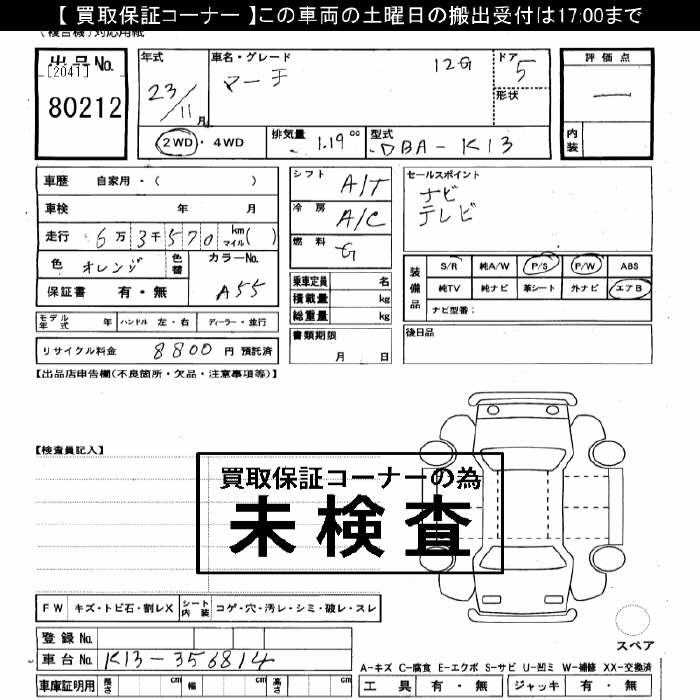 【 買取保証コーナー 】この車両の土曜日の搬出受付は17:00まで
(複合機)対応用紙
出品No.
[2041]
80212
年式
23/11月
車名・グレード
マーチ 12G
ドア
5
形状
評価点
―
内装
2WD・4WD
排気量 1.19 00
型式 DBA-K13
車歴 自家用・( )
車検 年 月
走行 6万3千570 km マイル( )
色 オレンジ
色替
カラーNo.
A55
保証書 有・無
シフト A/T
冷房 A/C
燃料 G
乗車定員 名
積載量 kg
総重量 kg
セールスポイント
ナビ
テレビ
装備品
S/R 純A/W P/S P/W ABS
純TV 純ナビ 革シート 外ナビ エアB
ナビ型番:
モデル年式 年 ハンドル 左・右 ディーラー・並行
リサイクル料金 8800 円 預託済
書類期限
月 日
後日品
【出品店申告欄(不良箇所・欠品・注意事項等)】
【検査員記入】
買取保証コーナーの為
未検査
FW キズ・トビ石・割レX シート内装 コゲ・穴・汚レ・シミ・破レ・スレ
登録No.
車台No. K13-356814
車庫証明用 長さ cm 幅 cm 高さ cm
スペア
A-キズ C-腐食 E-エクボ S-サビ U-凹ミ W-補修 XX-交換済
工具 有・無 ジャッキ 有・無